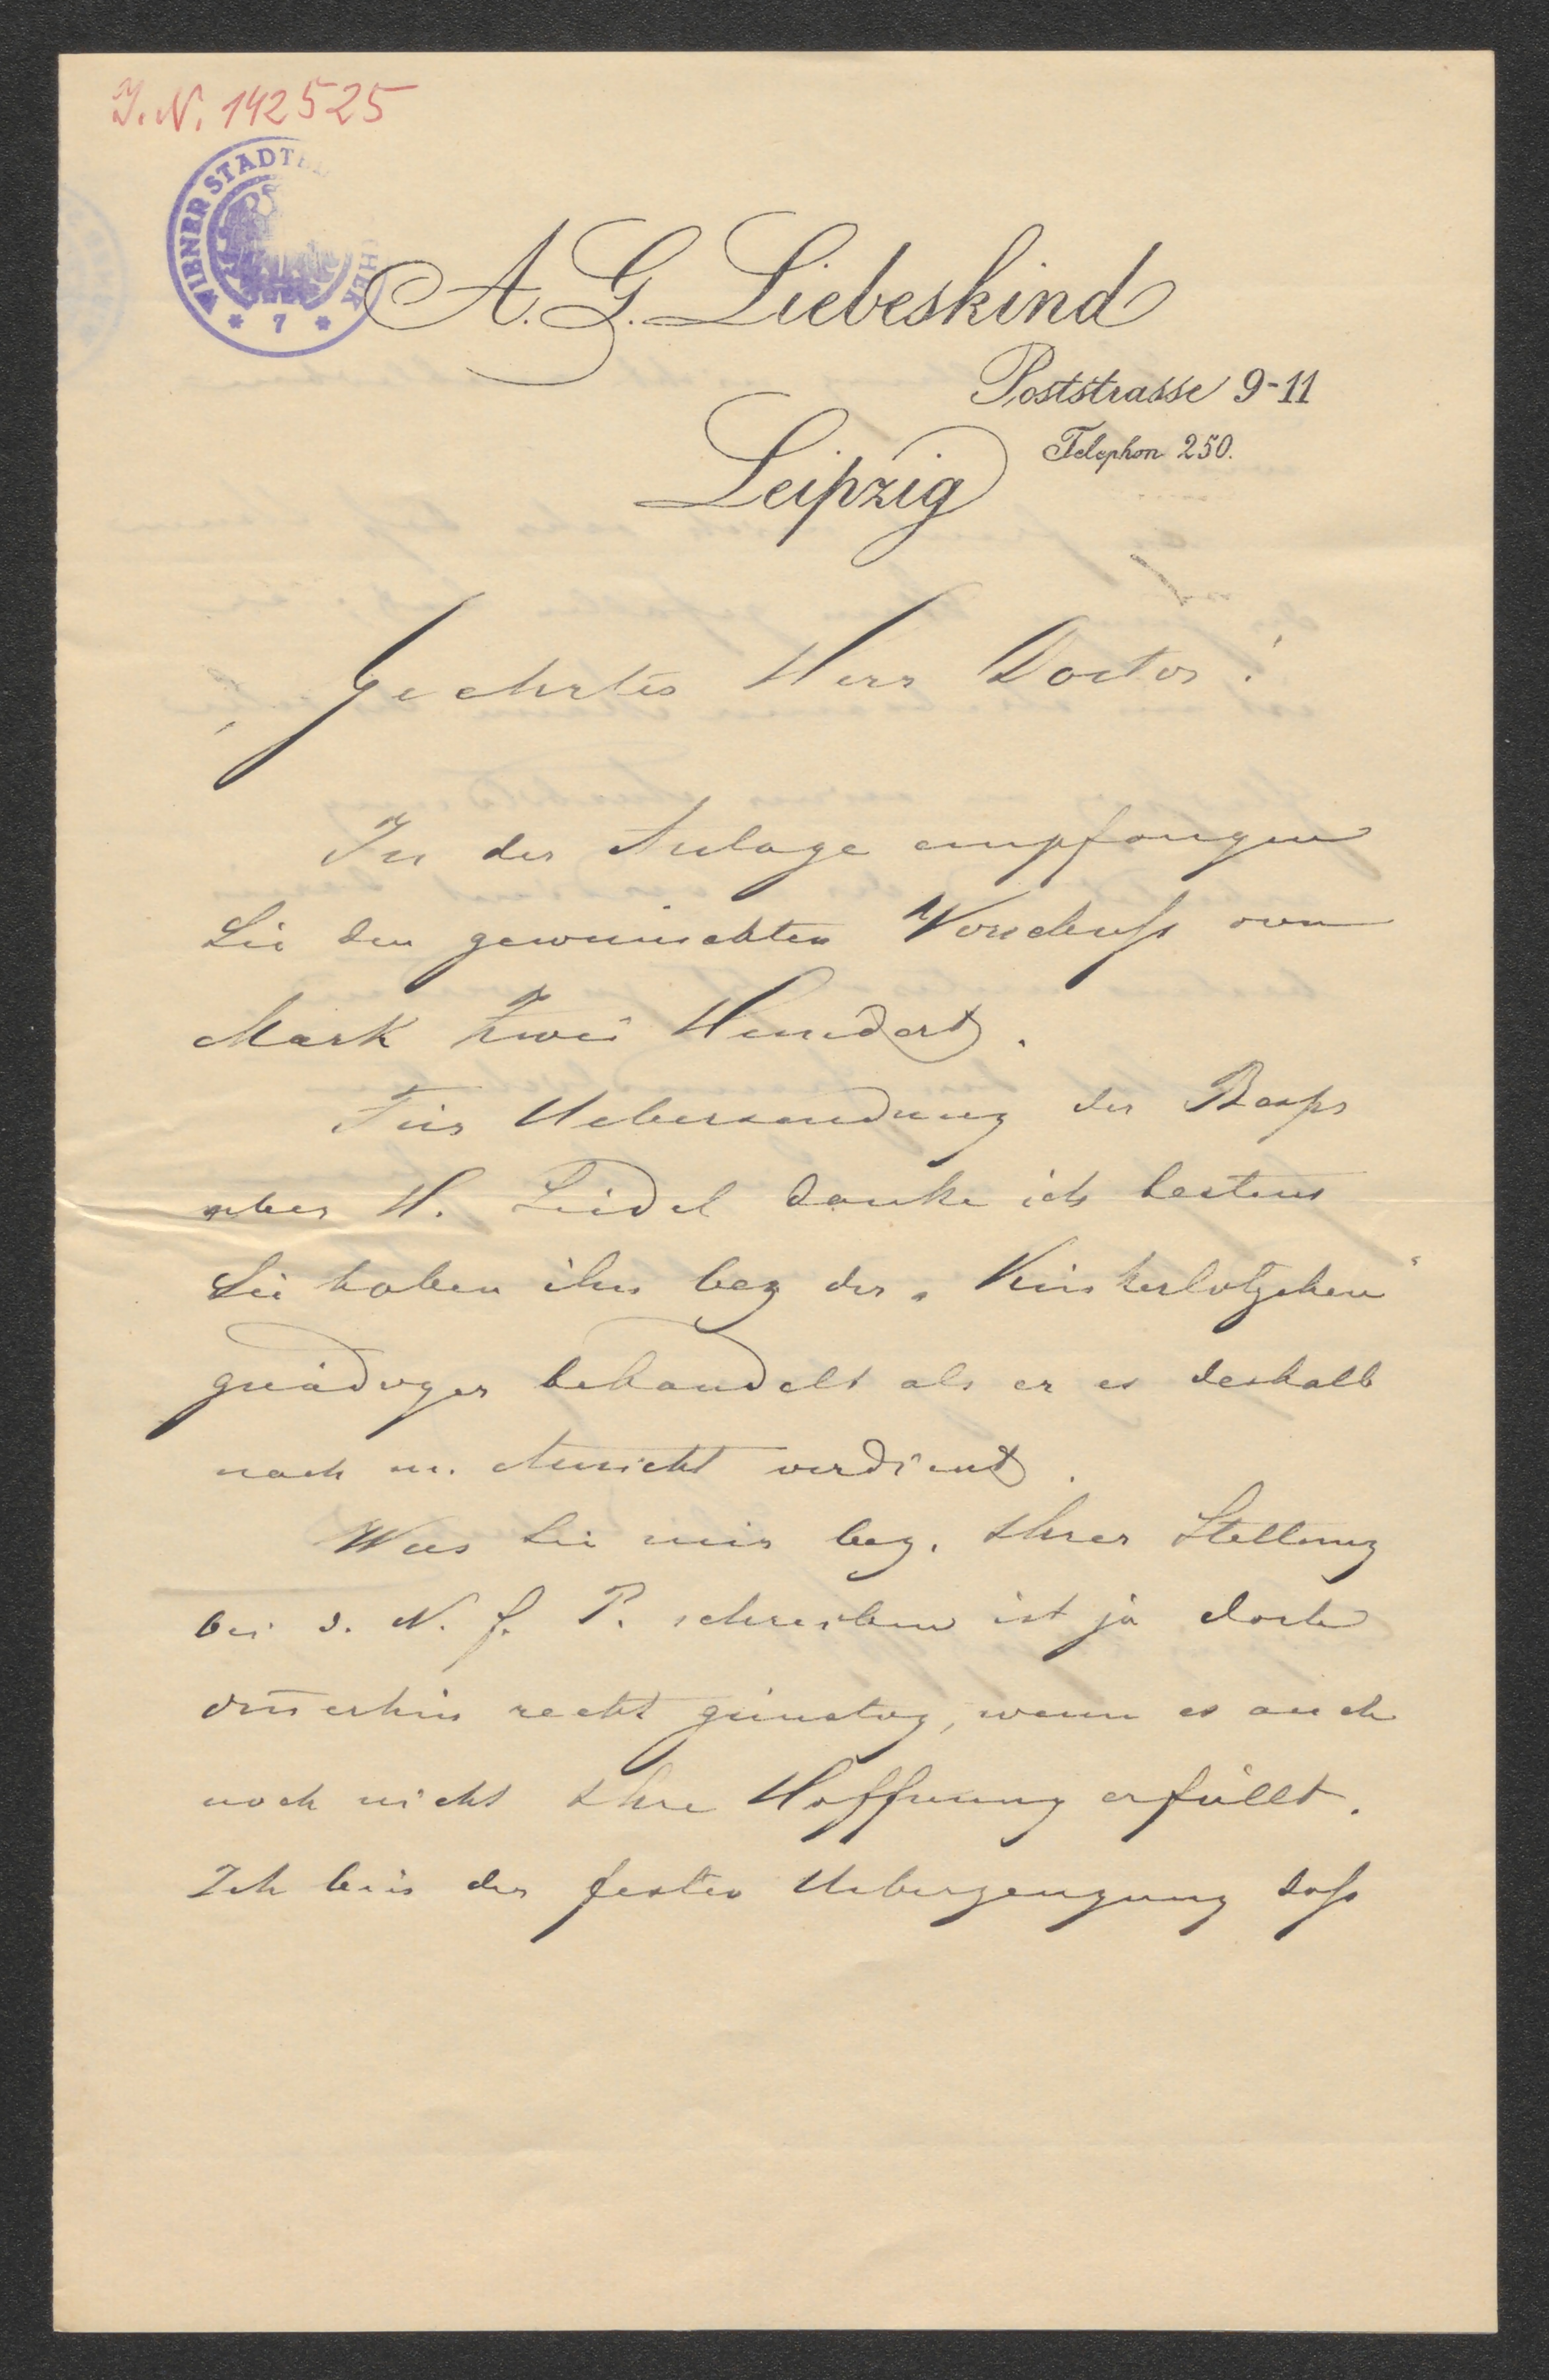 J. N. 142525
WIENER STADTB HEK
* 7 *
A. G. Liebeskind
Poststrasse 9-11
Telephon 250.
Leipzig
Geehrter Herr Doctor!
In der Anlage empfangen
Sie den gewünschten Vorschuß von
Mark Zwei Hundert.
Für Uebersendung der
über H. Seidel danke ich bestens
Sie haben ihn bez der „Kinkerlitzchen"
gnädiger behandelt als er es deshalb
nach m. Ansicht verdient.
Was Sie mir bez. Ihrer Stellung
bei d. N. f. P. schreiben ist ja doch
im̅erhin recht günstig, wenn es auch
noch nicht Ihre Hoffnung erfüllt.
Ich bin der festen Ueberzeugung daß